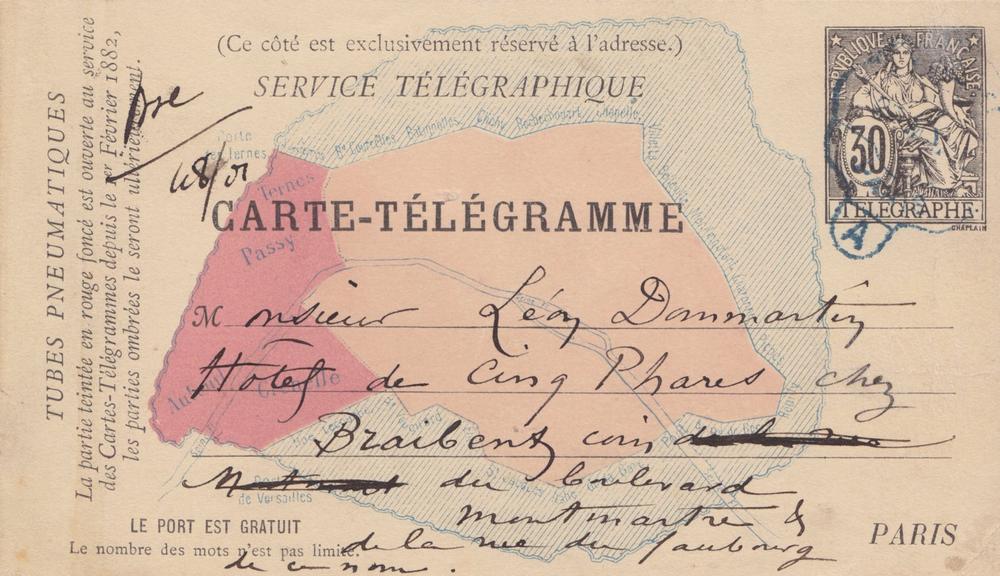 (Ce côté est exclusivement réservé à l'adresse.)
SERVICE TÉLÉGRAPHIQUE
RÉPUBLIQUE FRANÇAISE
30
TÉLÉGRAPHE
CHAPLAIN
A
TUBES PNEUMATIQUES
La partie teintée en rouge foncé est ouverte au service
des Cartes-Télégrammes depuis le 1er Février 1882,
les parties ombrées le seront ultérieurement.
Porte
des Ternes
Courcelles Batignolles Clichy Rochechouart Chapelle
Villette
Ternes
CARTE-TÉLÉGRAMME
Passy
Monsieur Léon Dommartin
Hôtel de Cinq Phares chez
Auteuil Grenelle
Braibent coin de la rue
du boulevard
de Versailles
montmartre &
LE PORT EST GRATUIT
PARIS
de la rue du faubourg
Le nombre des mots n'est pas limité.
de ce nom.